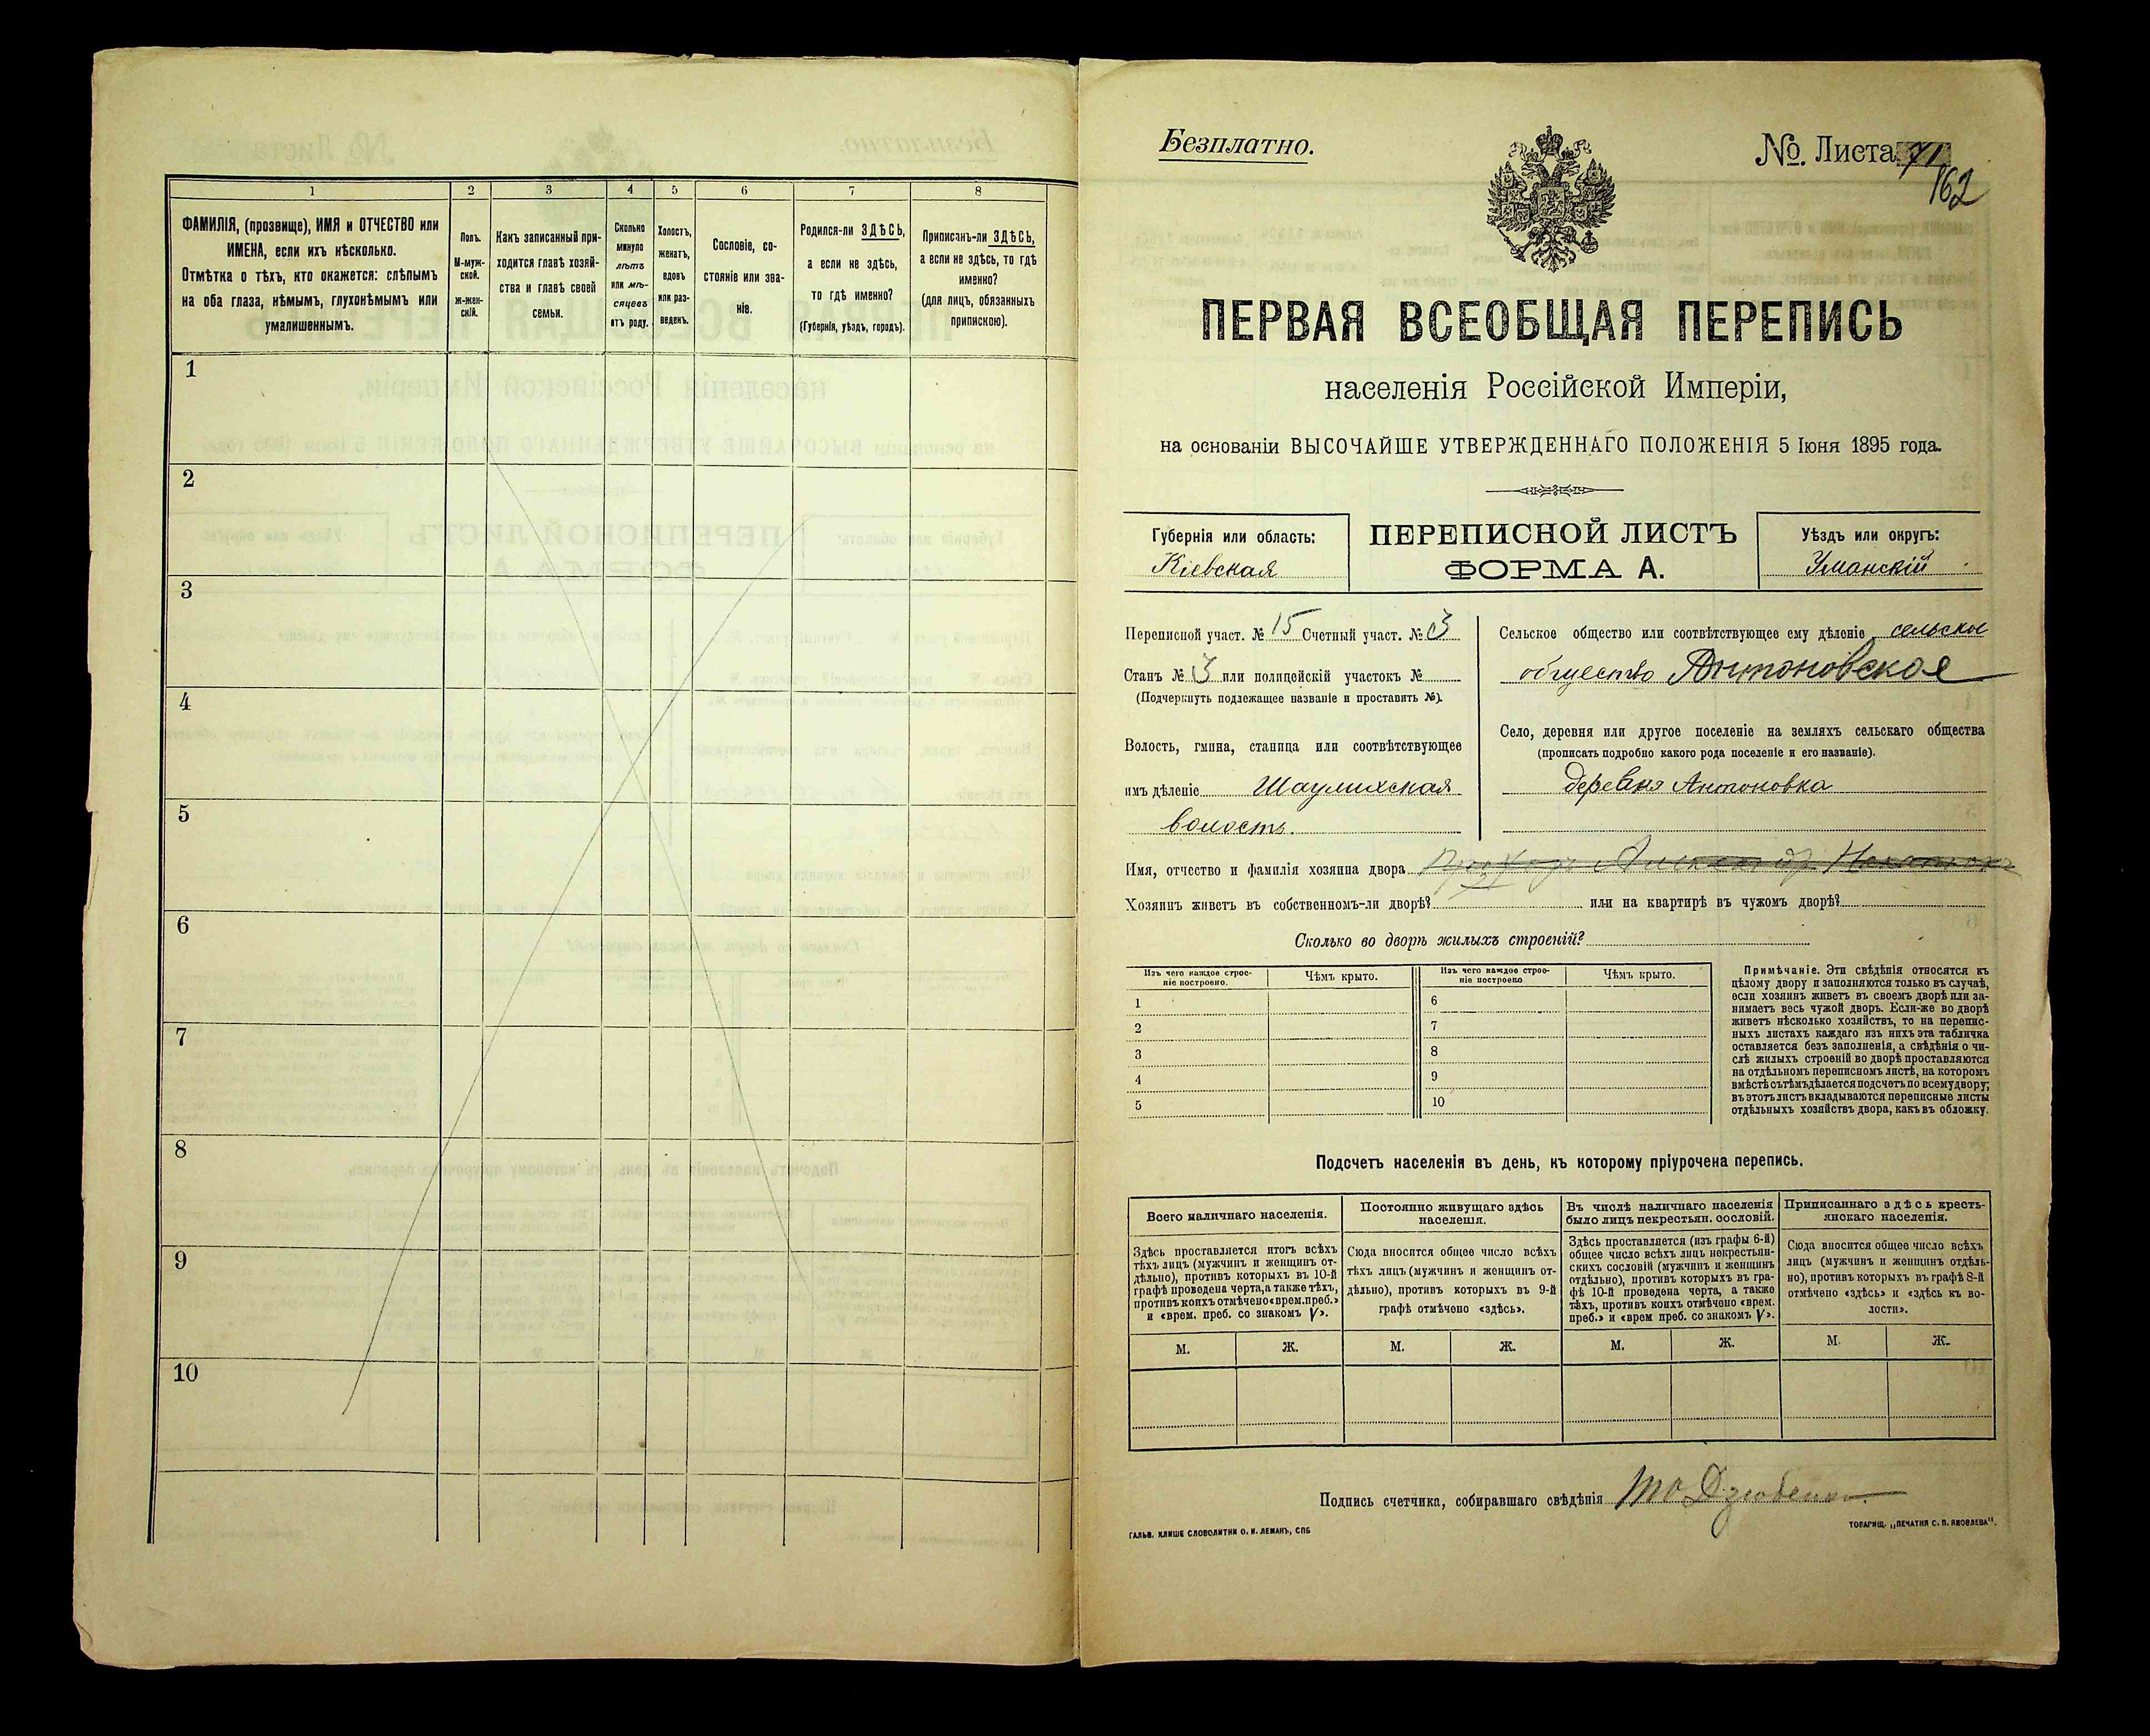 1
2
3
4
5
6
7
8
ФАМИЛІЯ, (прозвище), ИМЯ и ОТЧЕСТВО или
ИМЕНА, если ихъ нѣсколько.
Отмѣтка о тѣхъ, кто окажется: слѣпымъ
на оба глаза, нѣмымъ, глухонѣмымъ или
умалишеннымъ.
Полъ.
М-муж-
ской.
Ж-жен-
скій.
Какъ записанный при-
ходится главѣ хозяй-
ства и главѣ своей
семьи.
Сколько
минуло
лѣтъ
или мѣ-
сяцевъ
отъ роду.
Холостъ,
женатъ,
вдовъ
или раз-
веденъ.
Сословіе, со-
стояніе или зва-
ніе.
Родился-ли ЗДѢСЬ,
а если не здѣсь,
то гдѣ именно?
(Губернія, уѣздъ, городъ).
Приписанъ-ли ЗДѢСЬ,
а если не здѣсь, то гдѣ
именно?
(для лицъ, обязанныхъ
припискою).
1
2
3
4
5
6
7
8
9
10
Безплатно.
№. Листа 71
162
ПЕРВАЯ ВСЕОБЩАЯ ПЕРЕПИСЬ
населенія Россійской Имперіи,
на основаніи ВЫСОЧАЙШЕ УТВЕРЖДЕННАГО ПОЛОЖЕНІЯ 5 Іюня 1895 года.
Губернія или область:
Кіевская
ПЕРЕПИСНОЙ ЛИСТЪ
ФОРМА А.
Уѣздъ или округъ:
Уманскій
Переписной участ. № 15 Счетный участ. № 3
Станъ № 3 или полицейскій участокъ №
(Подчеркнуть подлежащее названіе и проставить №).
Волость, гмина, станица или соотвѣтствующее
имъ дѣленіе Шаулихская
волость.
Сельское общество или соотвѣтствующее ему дѣленіе сельское
общество Антоновское
Село, деревня или другое поселеніе на земляхъ сельскаго общества
(прописать подробно какого рода поселеніе и его названіе).
деревня Антоновка
Имя, отчество и фамилія хозяина двора
Хозяинъ живетъ въ собственномъ-ли дворѣ? или на квартирѣ въ чужомъ дворѣ?
Сколько во дворѣ жилыхъ строеній?
Изъ чего каждое строе-
ніе построено.
Чѣмъ крыто.
Изъ чего каждое строе-
ніе построено
Чѣмъ крыто.
1
2
3
4
5
6
7
8
9
10
Примѣчаніе. Эти свѣдѣнія относятся къ
цѣлому двору и заполняются только въ случаѣ,
если хозяинъ живетъ въ своемъ дворѣ или за-
нимаетъ весь чужой дворъ. Если-же во дворѣ
живетъ нѣсколько хозяйствъ, то на перепис-
ныхъ листахъ каждаго изъ нихъ эта табличка
оставляется безъ заполненія, а свѣдѣнія о чи-
слѣ жилыхъ строеній во дворѣ проставляются
на отдѣльномъ переписномъ листѣ, на которомъ
вмѣстѣ съ тѣмъ дѣлается подсчетъ по всему двору;
въ этотъ листъ вкладываются переписные листы
отдѣльныхъ хозяйствъ двора, какъ въ обложку.
Подсчетъ населенія въ день, къ которому пріурочена перепись.
Всего наличнаго населенія.
Постоянно живущаго здѣсь
населенія.
Въ числѣ наличнаго населенія
было лицъ некрестьян. сословій.
Приписаннаго здѣсь кресть-
янскаго населенія.
Здѣсь проставляется итогъ всѣхъ
тѣхъ лицъ (мужчинъ и женщинъ от-
дѣльно), противъ которыхъ въ 10-й
графѣ проведена черта, а также тѣхъ,
противъ коихъ отмѣчено «врем. преб.»
и «врем. преб. со знакомъ V».
Сюда вносится общее число всѣхъ
тѣхъ лицъ (мужчинъ и женщинъ от-
дѣльно), противъ которыхъ въ 9-й
графѣ отмѣчено «здѣсь».
Здѣсь проставляется (изъ графы 6-й)
общее число всѣхъ лицъ некрестьян-
скихъ сословій (мужчинъ и женщинъ
отдѣльно), противъ которыхъ въ гра-
фѣ 10-й проведена черта, а также
тѣхъ, противъ коихъ отмѣчено «врем.
преб.» и «врем преб. со знакомъ V».
Сюда вносится общее число всѣхъ
лицъ (мужчинъ и женщинъ отдѣль-
но), противъ которыхъ въ графѣ 8-й
отмѣчено «здѣсь» и «здѣсь къ во-
лости».
М.
Ж.
М.
Ж.
М.
Ж.
М.
Ж.
Подпись счетчика, собиравшаго свѣдѣнія Дзюбенко.
ГАЛЬВ. КЛИШЕ СЛОВОЛИТНИ О. И. ЛЕМАНЪ, СПБ
ТОВАРИЩ. „ПЕЧАТНЯ С. П. ЯКОВЛЕВА".